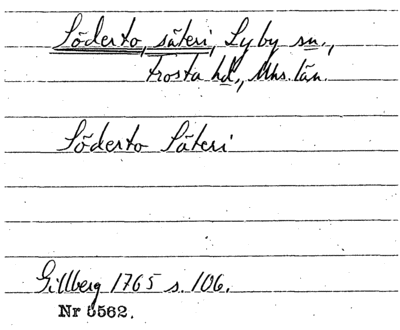 Söderto, säteri, Lyby sn.,
Frosta hd., Mhs. län.
Söderto Säteri
Gillberg 1765 s. 106.
Nr 5562.